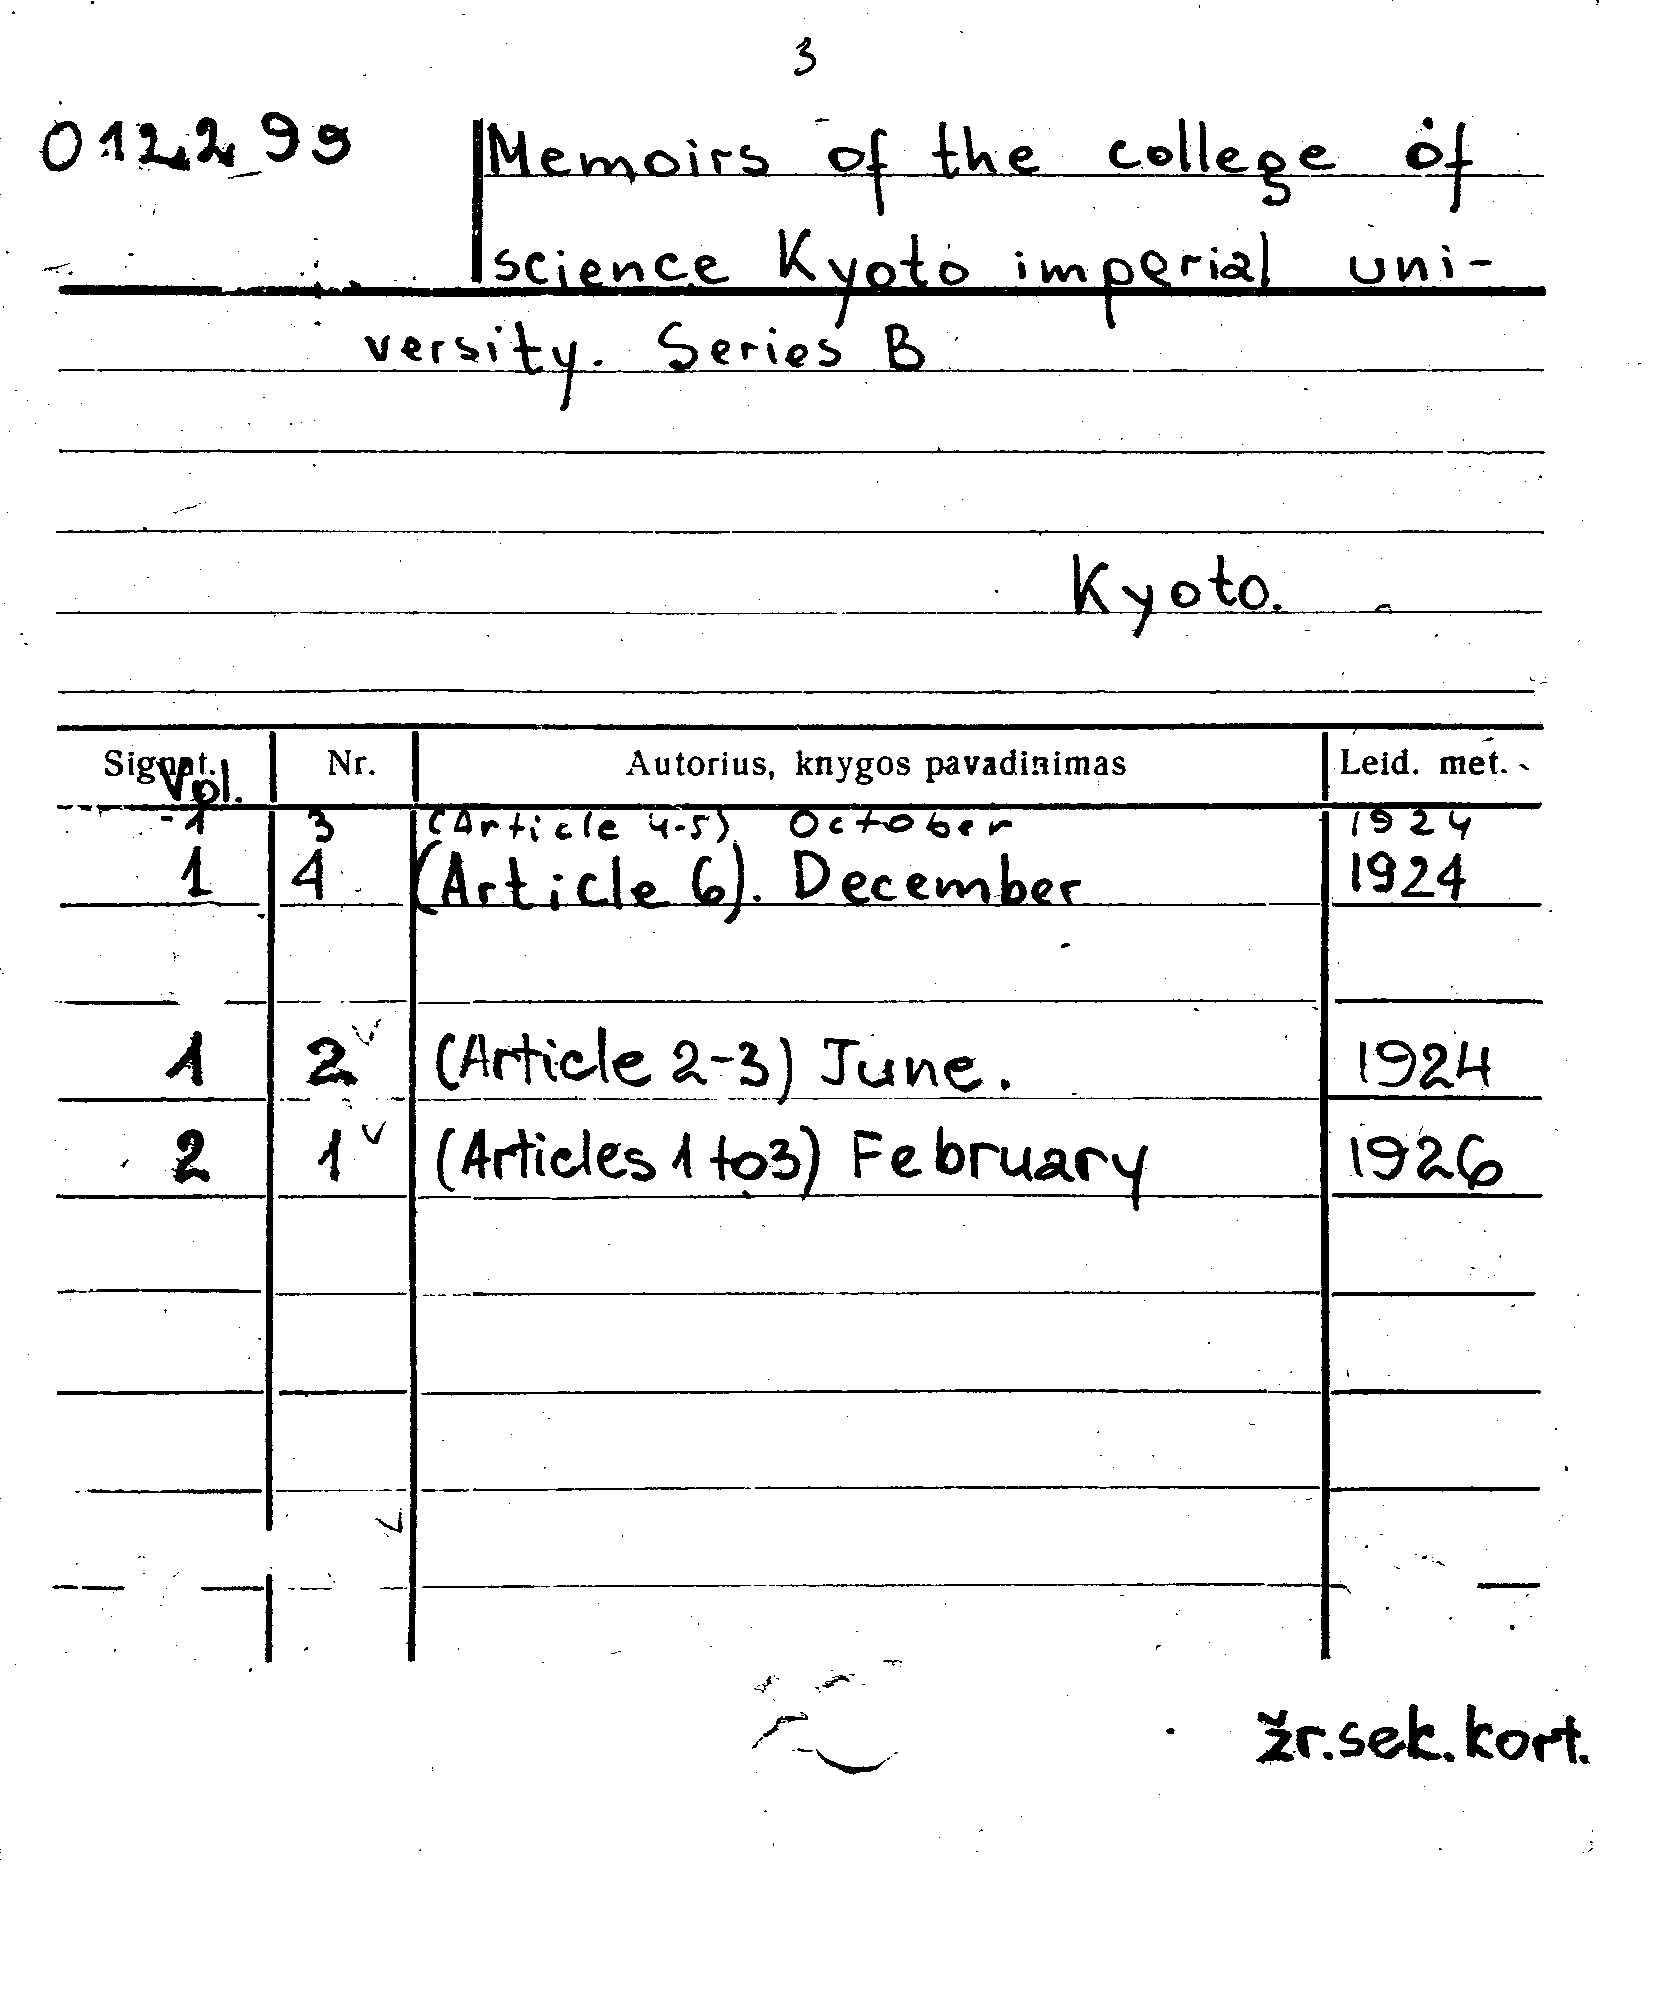 3
012299 Memoirs of the college of
science Kyoto imperial uni-
versity. Series B
Kyoto.
Signat. Nr. Autorius, knygos pavadinimas Leid. met.
Vol.
1 3 (Article 4-5) October 1924
1 4 (Article 6). December 1924
1 2 (Article 2-3) June. 1924
2 1 (Articles 1 to 3) February 1926
žr. sek. kort.